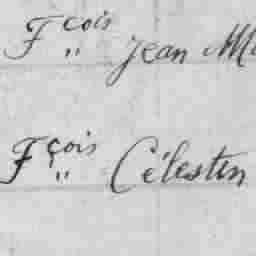 Fcois Jean
Fçois Célestin